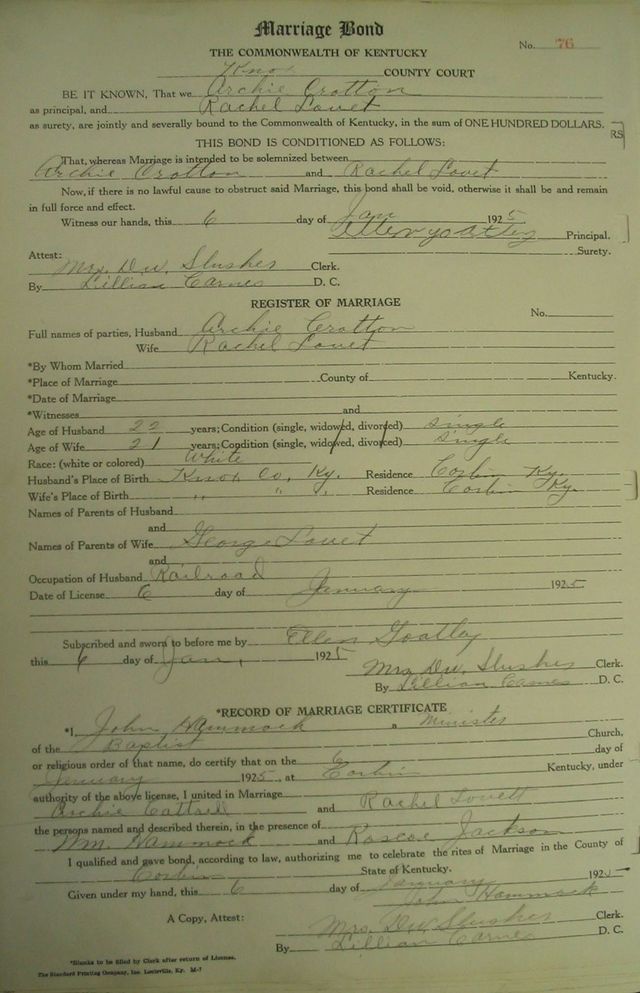 Marriage Bond
No. 76
THE COMMONWEALTH OF KENTUCKY
Knox COUNTY COURT
BE IT KNOWN, That we Archie Crotton
as principal, and Rachel Lovet
as surety, are jointly and severally bound to the Commonwealth of Kentucky, in the sum of ONE HUNDRED DOLLARS.
RS
THIS BOND IS CONDITIONED AS FOLLOWS:
That, whereas Marriage is intended to be solemnized between
Archie Crotton and Rachel Lovet
Now, if there is no lawful cause to obstruct said Marriage, this bond shall be void, otherwise it shall be and remain
in full force and effect.
Witness our hands, this 6 day of Jan 1925
Principal.
Surety.
Attest:
Mrs. D.W. Slusher Clerk.
By Lillian Carnes D. C.
REGISTER OF MARRIAGE
No.
Full names of parties, Husband Archie Crotton
Wife Rachel Lovet
*By Whom Married
*Place of Marriage County of Kentucky.
*Date of Marriage
*Witnesses and
Age of Husband 22 years; Condition (single, widowed, divorced) single
Age of Wife 21 years; Condition (single, widowed, divorced) single
Race: (white or colored) White
Husband's Place of Birth Knox Co, Ky. Residence Corbin Ky.
Wife's Place of Birth " " " Residence Corbin Ky.
Names of Parents of Husband
and
Names of Parents of Wife George Lovet
and
Occupation of Husband Railroad
Date of License 6 day of January 1925
Subscribed and sworn to before me by Ellen Goatley
this 6 day of Jan, 1925
Mrs. D.W. Slusher Clerk.
By Lillian Carnes D. C.
*RECORD OF MARRIAGE CERTIFICATE
*I, John Hammock a Minister
of the Baptist Church,
or religious order of that name, do certify that on the 6 day of
January 1925, at Corbin Kentucky, under
authority of the above license, I united in Marriage
Archie and Rachel Lovett
the persons named and described therein, in the presence of
Wm. Hammock and Roscoe Jackson
I qualified and gave bond, according to law, authorizing me to celebrate the rites of Marriage in the County of
Corbin State of Kentucky.
Given under my hand, this 6 day of January 1925
John Hammock
A Copy, Attest: Mrs. D.W. Slusher Clerk.
By Lillian Carnes D. C.
*Blanks to be filled by Clerk after return of License.
The Standard Printing Company, Inc. Louisville, Ky. M-7